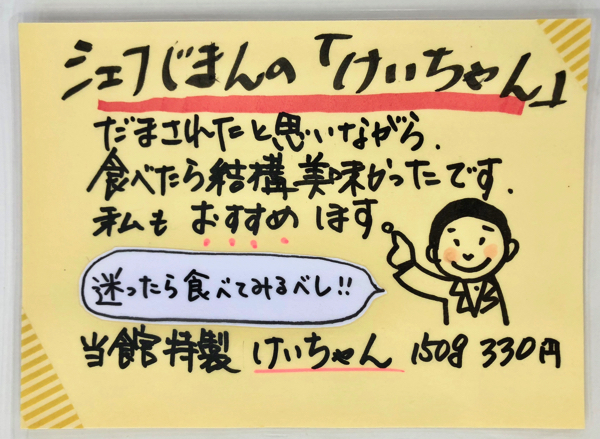 シェフじまんの「けいちゃん」
だまされたと思いながら、
食べたら結構美味かったです。
私もおすすめします。
迷ったら食べてみるべし!!
当館特製 けいちゃん 150g 330円